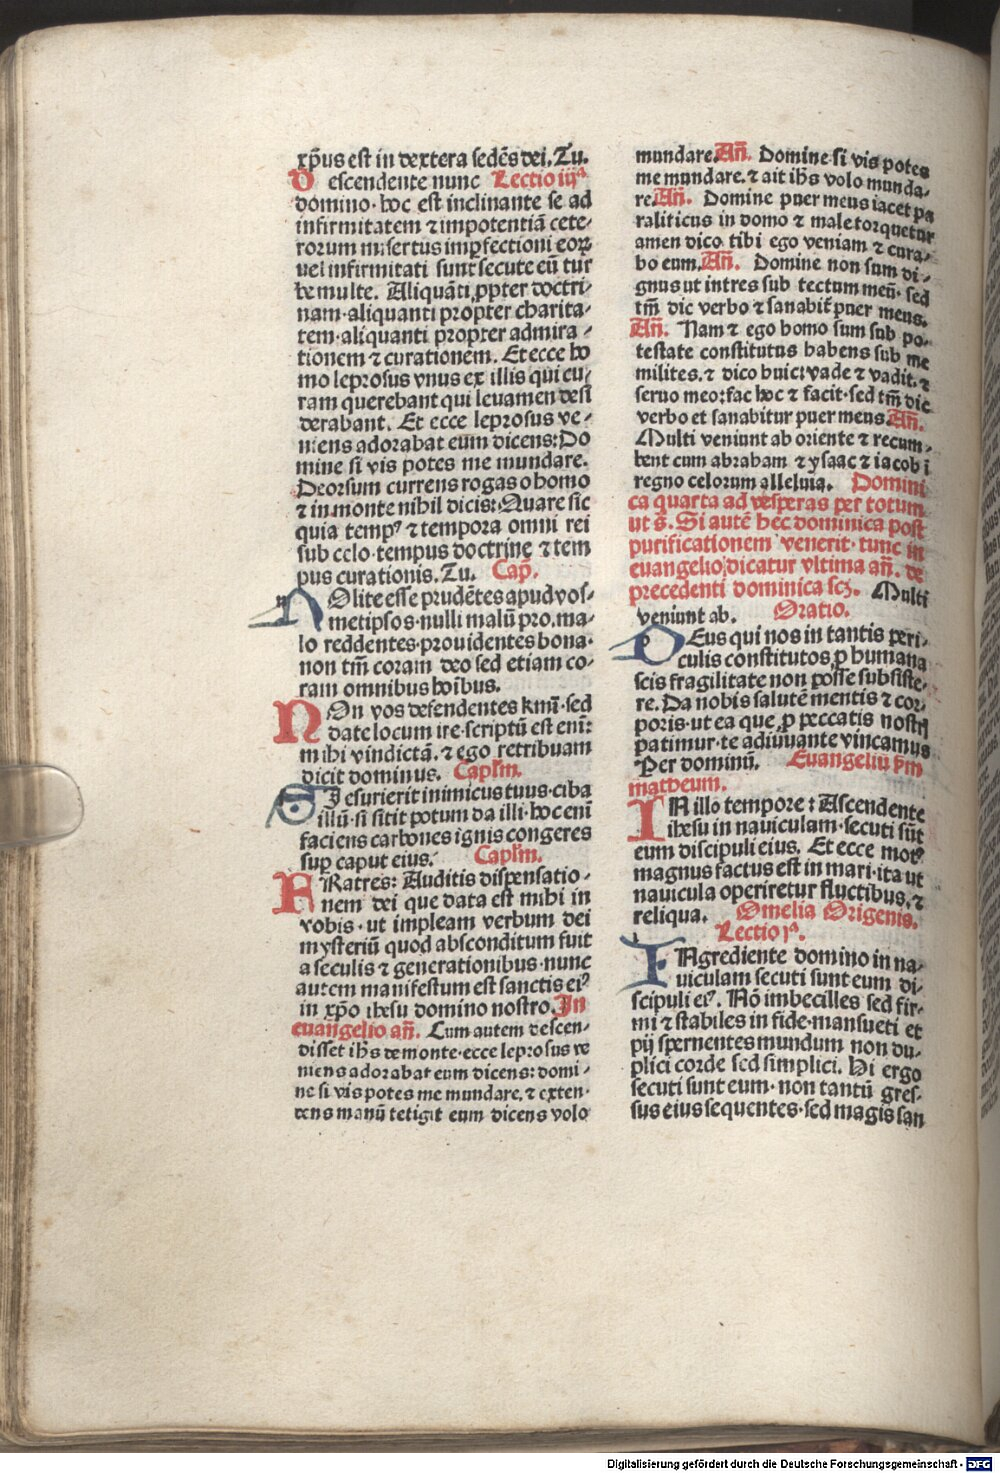 xp̄us est in dextera sedēs dei. Tu.
D escendente nunc Lectio iijª
domino·hoc est inclinante se ad
infirmitatem ⁊ impotentiā cete-
rorum misertus imꝑfectioni eoꝝ
uel infirmitati sunt secute eū tur
be multe. Aliquāti ꝓpter doctri-
nam·aliquanti propter charita-
tem·aliquanti propter admira-
tionem ⁊ curationem. Et ecce ho
mo leprosus vnus ex illis qui cu-
ram querebant qui leuamen desi
derabant. Et ecce leprosus ve-
niens adorabat eum dicens: Do
mine si vis potes me mundare.
Deorsum currens rogas o homo
⁊ in monte nihil dicis: Quare sic
quia tempꝰ ⁊ tempora omni rei
sub celo·tempus doctrine ⁊ tem
pus curationis. Tu. Cap̄.
NOlite esse prudētes apud vos-
metipsos·nulli malū pro ma-
lo reddentes·prouidentes bona·
non tm̄ coram deo sed etiam co-
ram omnibus hoībus.
NOn vos defendentes kmī·sed
date locum ire·scriptū est enī:
mihi vindictā·⁊ ego retribuam
dicit dominus. Capl̄m.
SI esurierit inimicus tuus·ciba
illū·si sitit potum da illi·hoc enī
faciens carbones ignis congeres
suꝑ caput eius. Capl̄m.
FRatres: Auditis dispensatio-
nem dei que data est mihi in
vobis·ut impleam verbum dei
mysteriū quod absconditum fuit
a seculis ⁊ generationibus·nunc
autem manifestum est sanctis eiꝰ
in xp̄o ihesu domino nostro. In
euangelio añ. Cum autem descen-
disset ihs̄ de monte·ecce leprosus ve
niens adorabat eum dicens: domi-
ne si vis potes me mundare. ⁊ exten-
dens manū tetigit eum dicens volo
mundare. Añ. Domine si vis potes
me mundare. ⁊ ait ihs̄ volo munda-
re. Añ. Domine puer meus iacet pa
raliticus in domo ⁊ male torquetur
amen dico tibi ego veniam ⁊ cura-
bo eum. Añ. Domine non sum di-
gnus ut intres sub tectum meū·sed
tm̄ dic verbo ⁊ sanabit̄ puer meus.
Añ. Nam ⁊ ego homo sum sub po-
testate constitutus habens sub me
milites.⁊ dico huic: vade ⁊ vadit.⁊
seruo meo: fac hoc ⁊ facit·sed tm̄ dic
verbo et sanabitur puer meus. Añ.
Multi venient ab oriente ⁊ recum-
bent cum abraham ⁊ ysaac ⁊ iacob ī
regno celorum alleluia. Domini
ca quarta ad vesperas per totum
ut s̄. Si autē hec dominica post
purificationem venerit·tunc in
euangelio dicatur vltima añ. de
precedenti dominica scꝫ. Multi
veniunt ab. Oratio.
DEus qui nos in tantis peri-
culis constitutos ꝓ humana
scis fragilitate non posse subsiste-
re. Da nobis salutē mentis ⁊ cor-
poris·ut ea que ꝓ peccatis nostris
patimur·te adiuuante vincamus
Per dominū. Euangeliū ẜm
matheum.
IN illo tempore: Ascendente
ihesu in nauiculam·secuti sūt
eum discipuli eius. Et ecce motꝰ
magnus factus est in mari·ita ut
nauicula operiretur fluctibus.⁊
reliqua. Omelia Origenis.
Lectio jª.
INgrediente domino in na-
uiculam secuti sunt eum di-
scipuli eiꝰ. Nō imbecilles sed fir-
mi ⁊ stabiles in fide·mansueti et
pij spernentes mundum non du-
plici corde sed simplici. Hi ergo
secuti sunt eum·non tantū gres-
sus eius sequentes·sed magis san
Digitalisierung gefördert durch die Deutsche Forschungsgemeinschaft - DFG